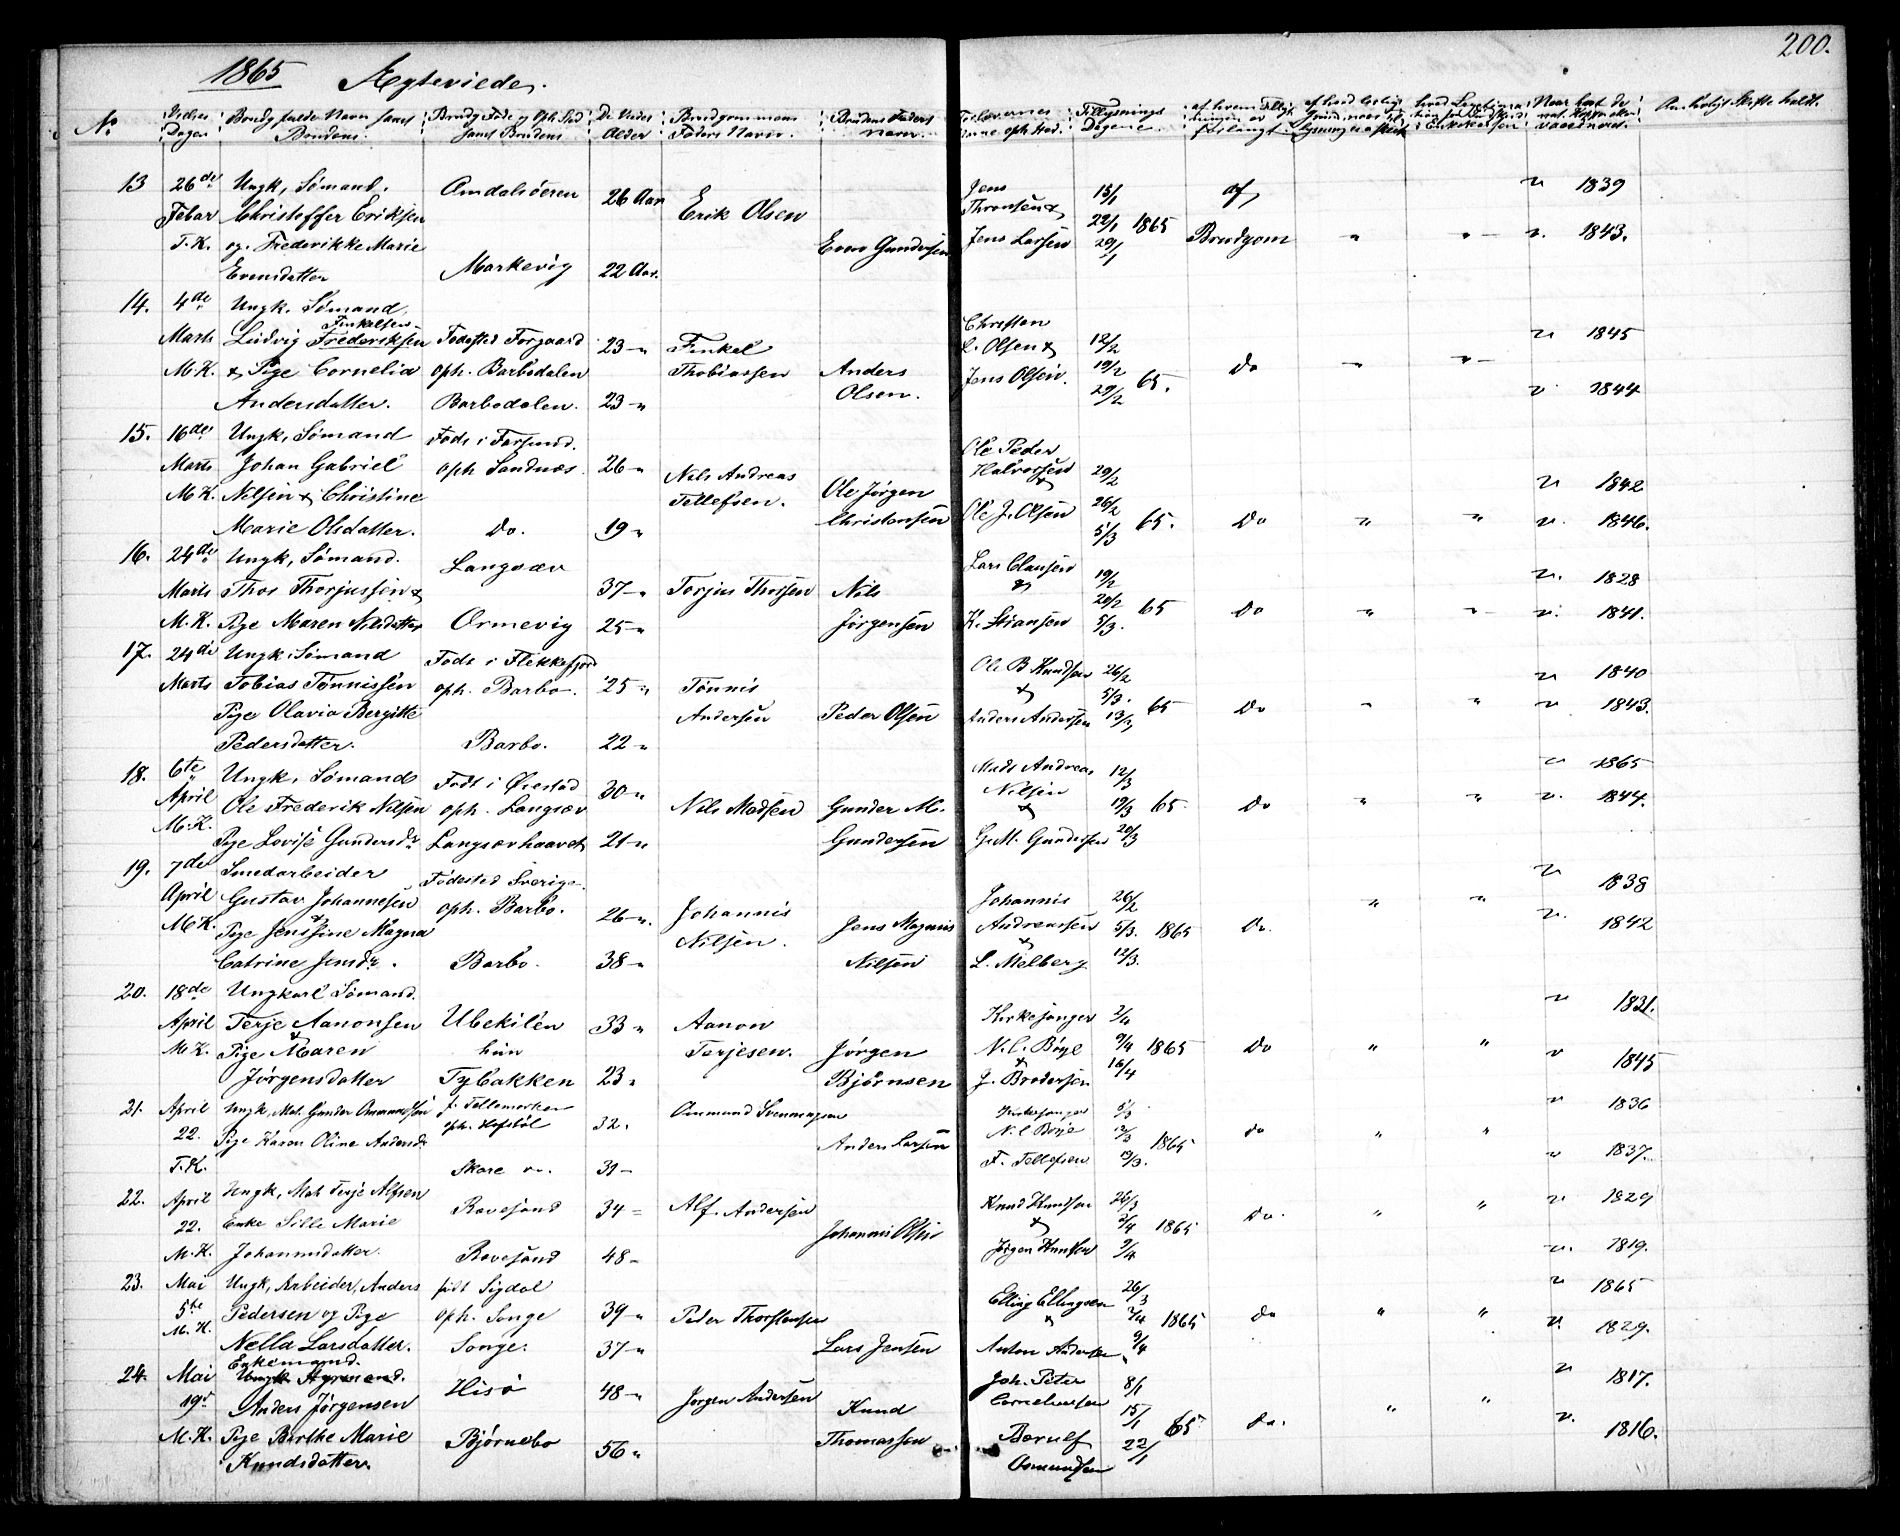 200.
1865 Ægteviede.
No
Vielses Dagen
Brudgommens Navn samt Brudens.
De Viedes Alder
Brudgommens Faders Navn.
Brudens Faders Navn.
Tillysnings Dagene.
13 26de Febar T.K.
Ungk, Sømand.
Christoffer Eriksen
og Frederikke Marie
Evensdatter
Omdalsøeren 26 Aar
Markevig 22 Aar.
Erik Olsen
Even Gundersen
Jens
Thronsen &
Jens Larsen
15/1 22/1 29/1 1865
af Brudgom
" " " 1839
" 1843.
14. 4de Marts M.K.
Ungk. Sømand
Finkelsen
Ludvig Frederiksen
& Pige Cornelia
Andersdatter.
Fødested Forgaard
oph. Barbodalen
Barbodalen.
23 " 23 "
Finkel
Thobiassen
Anders
Olsen.
Christen
C. Olsen &
Jens Olsen.
12/2 19/2 29/2 65.
Do " " " 1845
" 1844
15. 16de Marts M.K.
Ungk, Sømand
Johan Gabriel
Nilsen & Christine
Marie Olsdatter.
Født i Farsund.
oph Sandnæs.
Do.
26 " 19 "
Nils Andreas
Tellefsen.
Ole Jørgen
Christensen
Ole Peder
Halvorsen
&
Ole J. Olsen
29/2 26/2 5/3 65.
Do " " " 1842
" 1846.
16. 24de Marts M.K.
Ungk, Sømand.
Thos Thorjussen &
Pige Maren Nilsdatter
Langsæv 37 "
Ormevig 25 "
Torjus Thorssen
Nils
Jørgensen
Lars Clausen
&
K. Stiansen
19/2 20/2 5/3. 65
Do " " " 1828
" 1841.
17. 24de Marts
Ungk. Sømand
Tobias Tønnissen
Pige Olavia Bergitte
Pedersdatter.
Født i Flekkefjord
oph. Barbo.
Barbo.
25 " 22 "
Tønnis
Andersen
Peder Olsen
Ole B Knudsen
&
Anders Andersen
26/2 5/3. 13/3 65
Do " " " 1840
" 1843.
18. 6te April M.K.
Ungk. Sømand
Ole Frederik Nilsen
Pige Lovise Gundersdr
Født i Øiestad
oph. Langsæv
Langsævhaavet
30 " 21 "
Nils Madsen
Gunder M.
Gundersen
Mads Andreas
Nilsen
&
G. M. Gundersen
12/3 19/3 20/3 65
Do " " " 1865
" 1844.
19. 7de April M.K.
Smedarbeider
Gustav Johannesen
&
Pige Jensine Magna
Catrine Jensdr.
Fødested Sverige.
oph. Barbo.
Barbo.
26 " 38 "
Johannis
Nilsen.
Jens Magnus
Nilsen
Johannis
Andreassen
&
L. Melberg
26/2 5/3. 12/3. 1865
Do. " " " 1838
" 1842
20. 18de April M.K.
Ungkarl Sømand.
Terje Aanonsen
&
Pige Maren
Jørgensdatter
Ubekilen
hun
Tybakken
33 " 23 "
Aanon
Terjesen.
Jørgen
Bjørnsen
Kirkesanger
N. C. Bøye
&
J. Brodersen
2/4 9/4 16/4 1865
Do " " " 1831.
" 1845
21. April 22. T.K.
Ungk, Mat. Gunder Ommundsen
Pige Karen Oline Andersdr
f. Tellemarken
oph. Hofsbøl
Skare
32. 31 "
Ommund Svenningsen
Anders Larsen
Kirkesanger
N. C Bøye
F. Tellefsen
5/3 12/3 19/3. 1865
do " " " 1836
" 1837.
22. April 22. M.K.
Ungk, Mat. Terje Alfsen
Enke Sille Marie
Johannisdatter.
Revesand
Revesand
34 " 48 "
Alf. Andersen
Johannis Olsen
Knud Knudsen
&
Jørgen Knudsen
26/3 2/4 9/4 1865
Do. " " " 1829
" 1819.
23. Mai 5te M.K.
Ungk, Arbeider, Anders
Pedersen og Pige
Nella Larsdatter.
født Sigdal
oph. Songe
Songe.
39 " 37 "
Peder Thorstensen
Lars Jensen
Elling Ellingsen
&
Anton Andersen
26/3 2/4 9/4 1865
Do " " " 1865
" 1829.
24. Mai 19de M.K.
Enkemand.
Ungk Gaarmand.
Anders Jørgensen
Pige Berthe Marie
Knudsdatter.
Hisø 48 "
Bjørnebo 56 "
Jørgen Andersen
Knud
Thomassen
Joh. Peter
Corneliussen
Bernulf
Osmundsen
8/1 15/1 22/1 65
Do. " " " 1817.
" 1816.